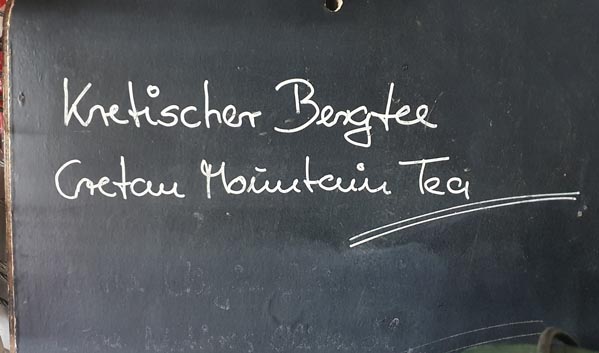 Kretischer Bergtee
Cretan Mountain Tea